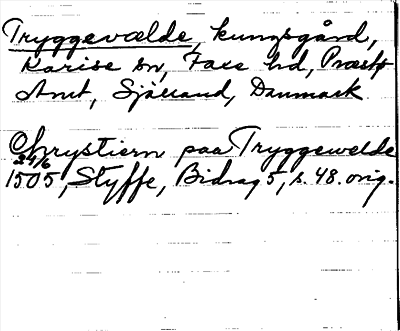 Tryggevælde kungsgård,
Karise sn, Faxe hd, Præstö
Amt, Själland, Danmark
Chrystiern paa Tryggewelde
24/6
1505, Styffe, Bidrag 5, s. 48. orig.